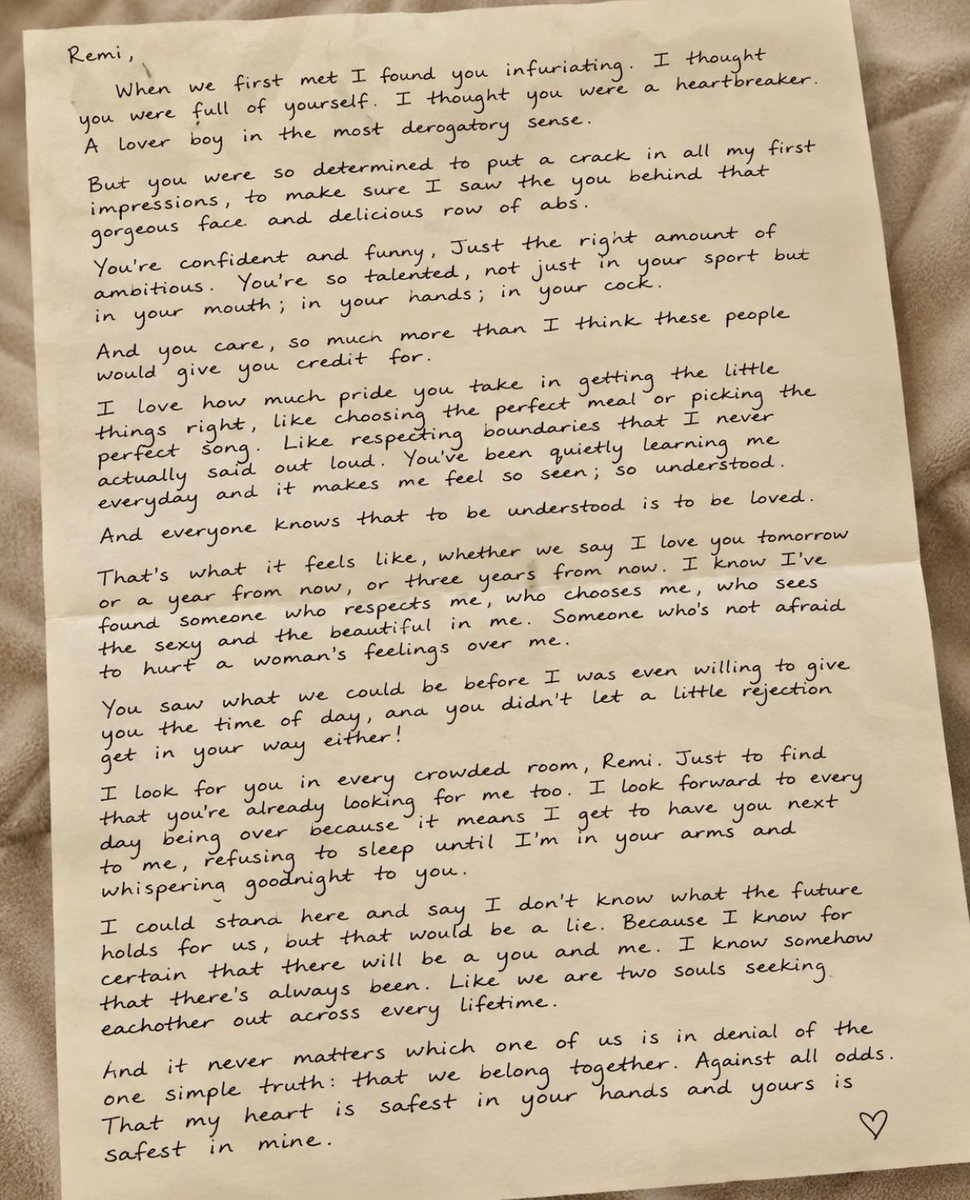 Remi,
When we first met I found you infuriating. I thought
you were full of yourself. I thought you were a heartbreaker.
A lover boy in the most derogatory sense.
But you were so determined to put a crack in all my first
impressions, to make sure I saw the you behind that
gorgeous face and delicious row of abs.
You're confident and funny, Just the right amount of
ambitious. You're so talented, not just in your sport but
in your mouth; in your hands; in your cock.
And you care, so much more than I think these people
would give you credit for.
I love how much pride you take in getting the little
things right, like choosing the perfect meal or picking the
perfect song. Like respecting boundaries that I never
actually said out loud. You've been quietly learning me
everyday and it makes me feel so seen; so understood.
And everyone knows that to be understood is to be loved.
That's what it feels like, whether we say I love you tomorrow
or a year from now, or three years from now. I know I've
found someone who respects me, who chooses me, who sees
the sexy and the beautiful in me. Someone who's not afraid
to hurt a woman's feelings over me.
You saw what we could be before I was even willing to give
you the time of day, and you didn't let a little rejection
get in your way either!
I look for you in every crowded room, Remi. Just to find
that you're already looking for me too. I look forward to every
day being over because it means I get to have you next
to me, refusing to sleep until I'm in your arms and
whispering goodnight to you.
I could stand here and say I don't know what the future
holds for us, but that would be a lie. Because I know for
certain that there will be a you and me. I know somehow
that there's always been. Like we are two souls seeking
eachother out across every lifetime.
And it never matters which one of us is in denial of the
one simple truth: that we belong together. Against all odds.
That my heart is safest in your hands and yours is
safest in mine.